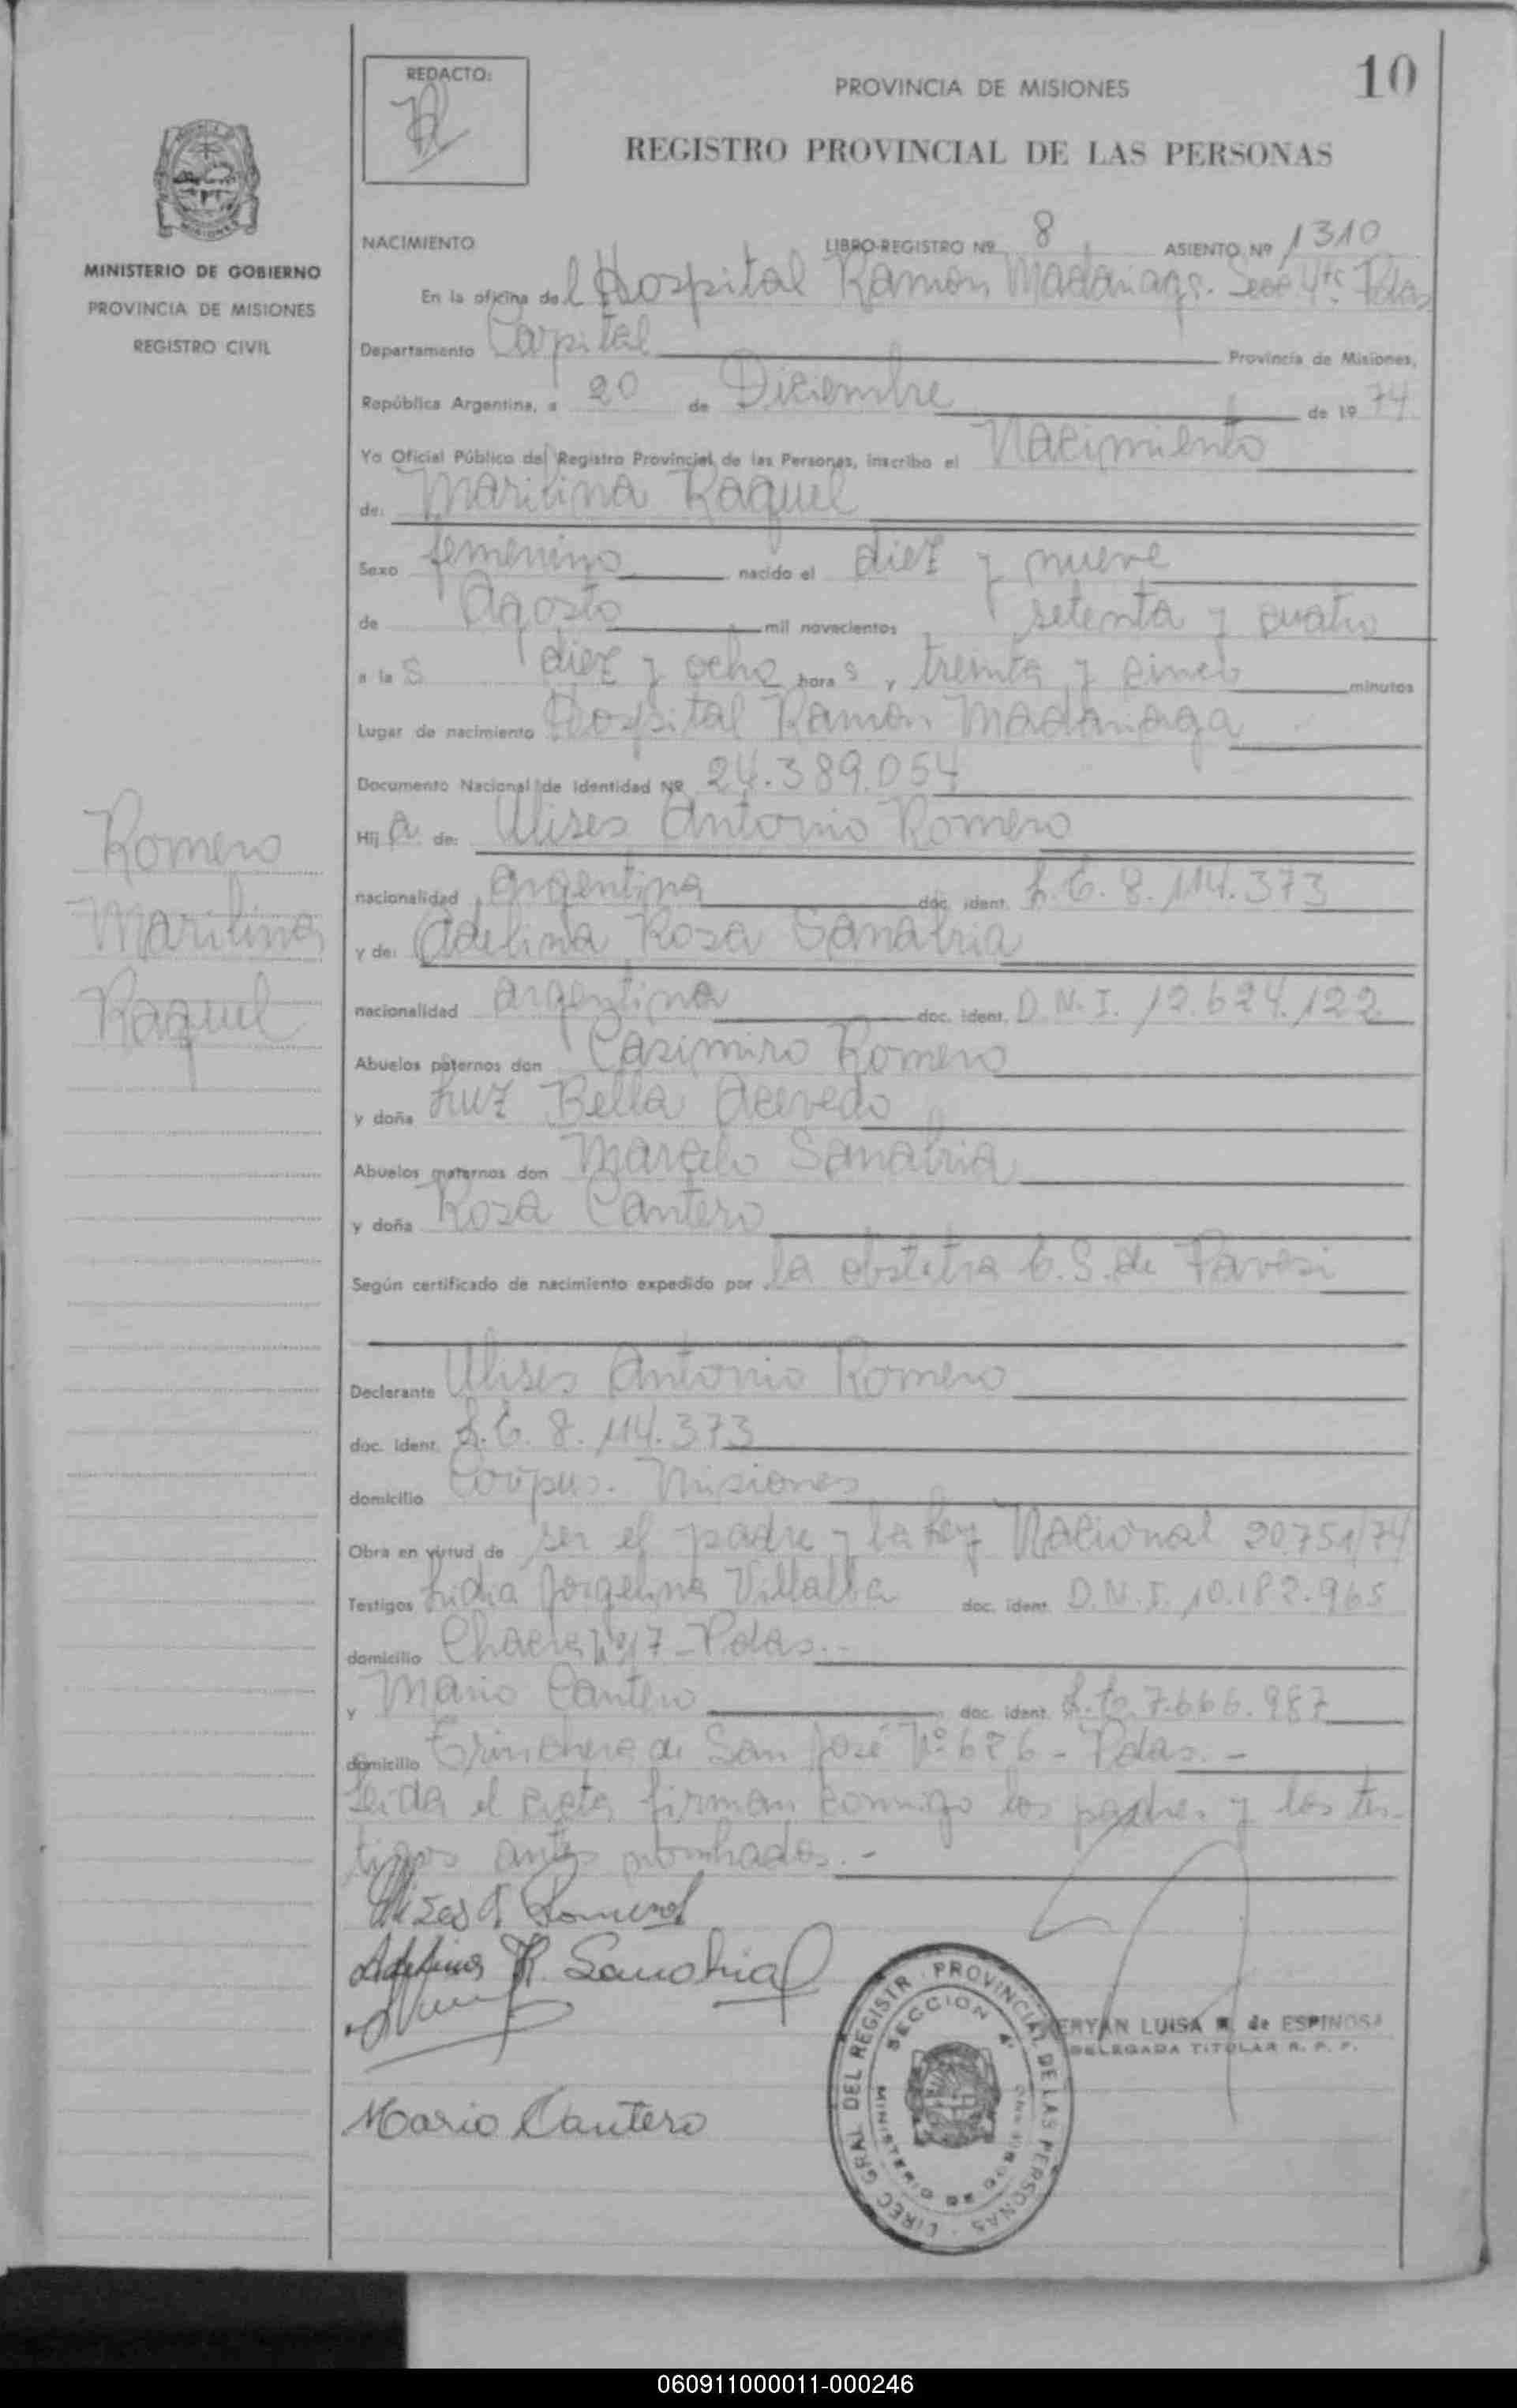 REDACTO:
PROVINCIA DE MISIONES
10
REGISTRO PROVINCIAL DE LAS PERSONAS
MISIONES
MINISTERIO DE GOBIERNO
PROVINCIA DE MISIONES
REGISTRO CIVIL
NACIMIENTO LIBRO-REGISTRO Nº 8 ASIENTO Nº 1310
En la oficina del Hospital Ramón Madariaga. Secc 4ta Pdas
Departamento Capital Provincia de Misiones,
República Argentina, a 20 de Diciembre de 1974
Yo Oficial Público del Registro Provincial de las Personas, inscribo el Nacimiento
de: Marilina Raquel
Sexo femenino nacido el diez y nueve
de Agosto mil novecientos setenta y cuatro
a las diez y ocho horas y treinta y cinco minutos
Lugar de nacimiento Hospital Ramón Madariaga
Documento Nacional de Identidad Nº 24.389.054
Hija de: Ulises Antonio Romero
nacionalidad argentina doc. ident. L.E. 8.114.373
y de: Adelina Rosa Sanabria
nacionalidad argentina doc. ident. D.N.I. 12.624.122
Abuelos paternos don Casimiro Romero
y doña Luz Bella Acevedo
Abuelos maternos don Marcelo Sanabria
y doña Rosa Cantero
Según certificado de nacimiento expedido por la obstetra C.S. de Pavesi
Romero
Marilina
Raquel
Declarante Ulises Antonio Romero
doc. ident. L.E. 8.114.373
domicilio Corpus. Misiones
Obra en virtud de ser el padre y la Ley Nacional 20751/74
Testigos Lidia Jorgelina Villalba doc. ident. D.N.I. 10.182.965
domicilio Chacra Nº 17 - Pdas.-
y Mario Cantero doc. ident. L.E. 7.666.987
domicilio Trinchera de San José Nº 676 - Pdas.-
Leida el acta firman conmigo los padres y los tes-
tigos antes nombrados.-
Ulises A Romero
Adelina R. Sanabria
Mario Cantero
ERYAN LUISA M. de ESPINOSA
DELEGADA TITULAR R. P. P.
DIREC GRAL DEL REGISTR. PROVINCIAL DE LAS PERSONAS
SECCION 4ª
MINISTERIO DE GOBIERNO
060911000011-000246